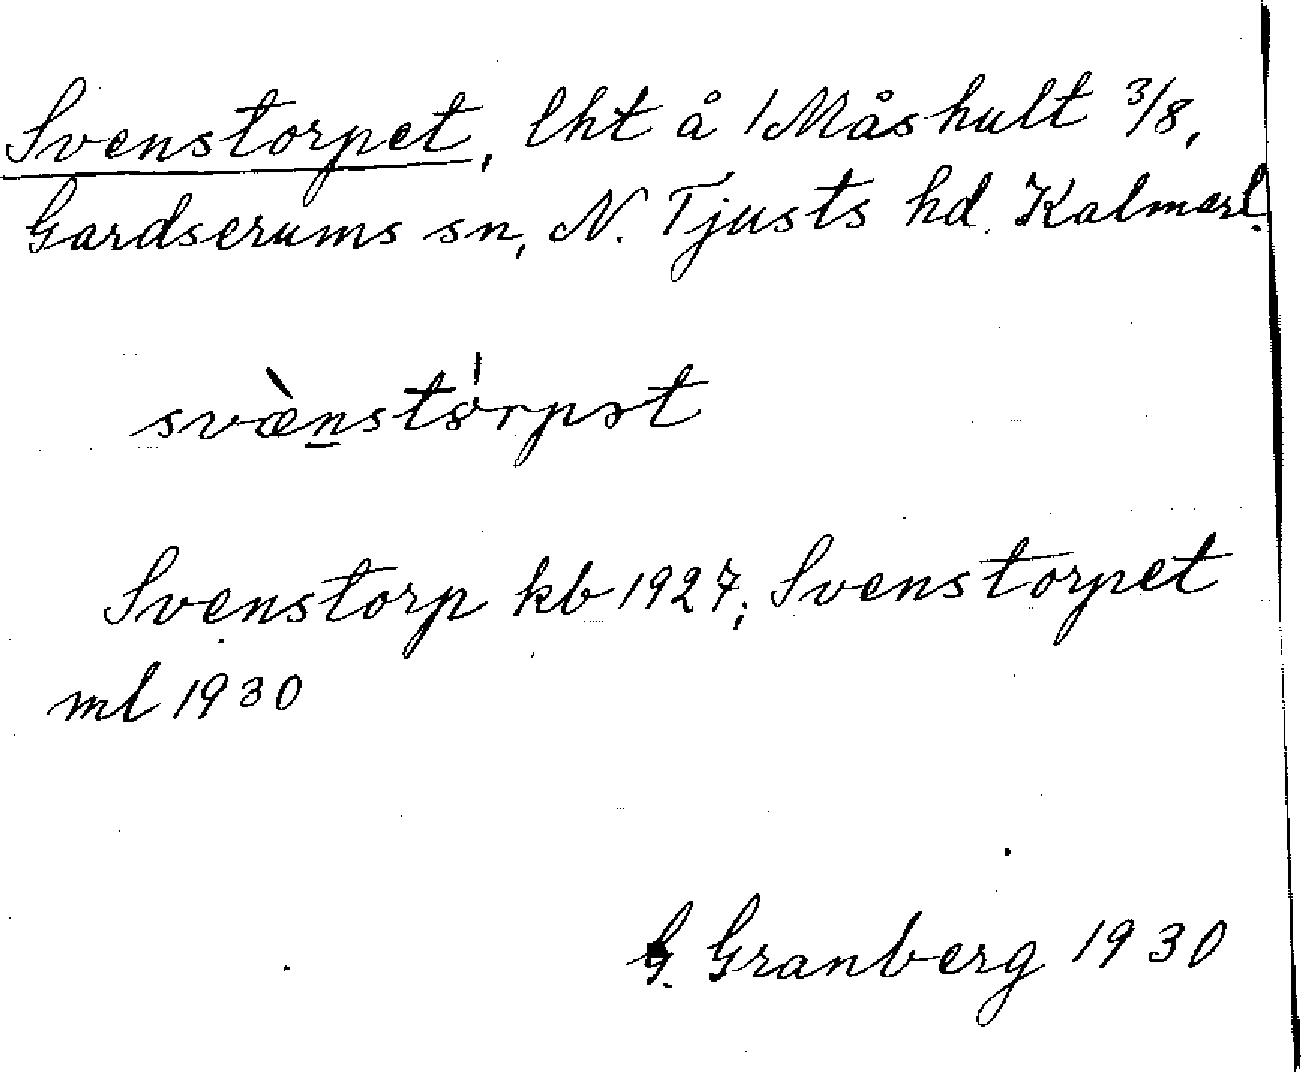 Svenstorpet, lht å Måshult 3/8,
Gardserums sn, N. Tjusts hd. Kalmarl.
svæ̀n̠stɵ̍rpət
Svenstorp kb 1927; Svenstorpet
ml 1930
G. Granberg 1930